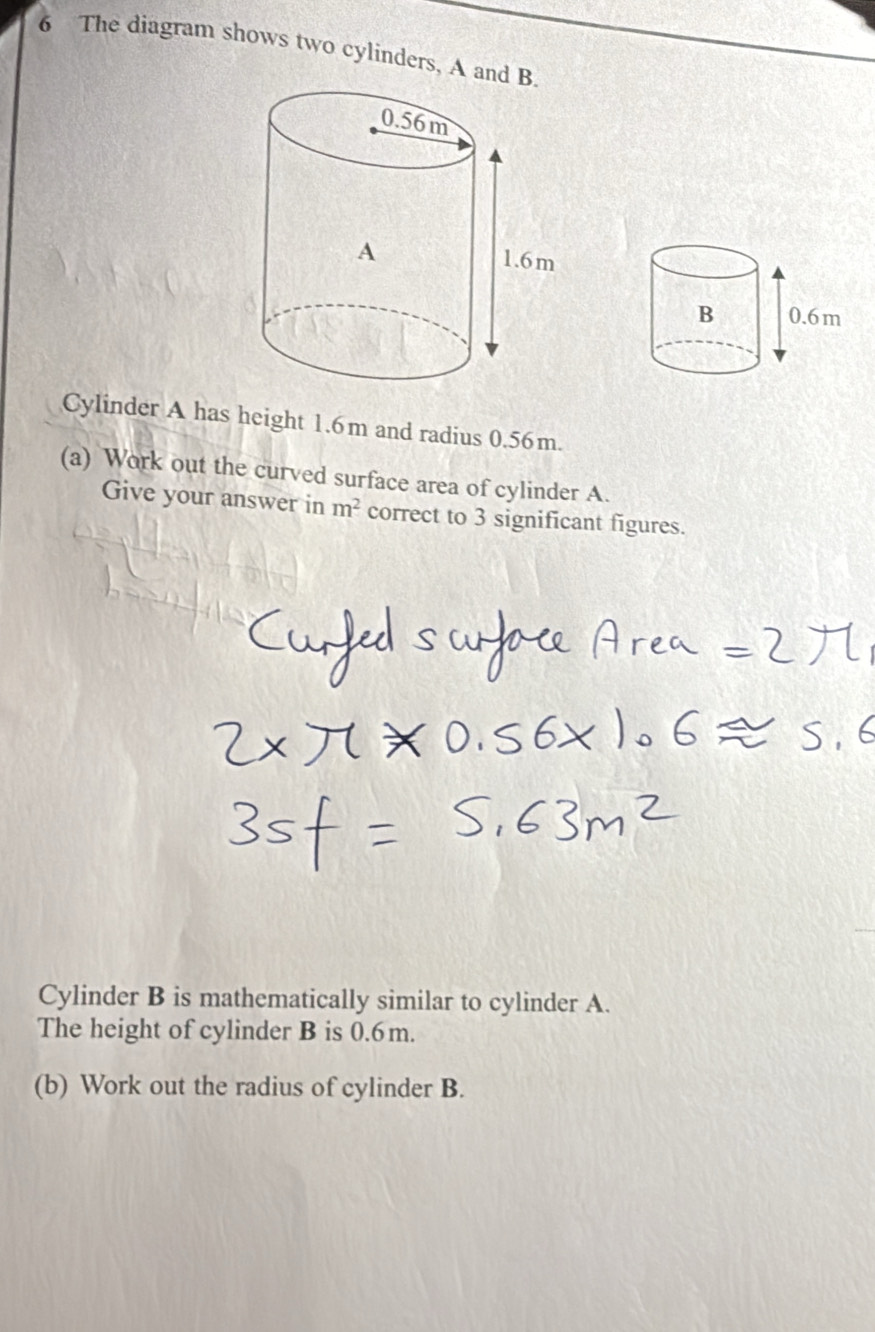 6 The diagram shows two cylinders, A and B.
0.56 m
A
1.6 m
B
0.6 m
Cylinder A has height 1.6 m and radius 0.56 m.
(a) Work out the curved surface area of cylinder A.
Give your answer in m² correct to 3 significant figures.
Curfed surface Area = 2 π
2 x π x 0.56 x 1.6 ≈ 5.6
3sf = 5.63m²
Cylinder B is mathematically similar to cylinder A.
The height of cylinder B is 0.6 m.
(b) Work out the radius of cylinder B.